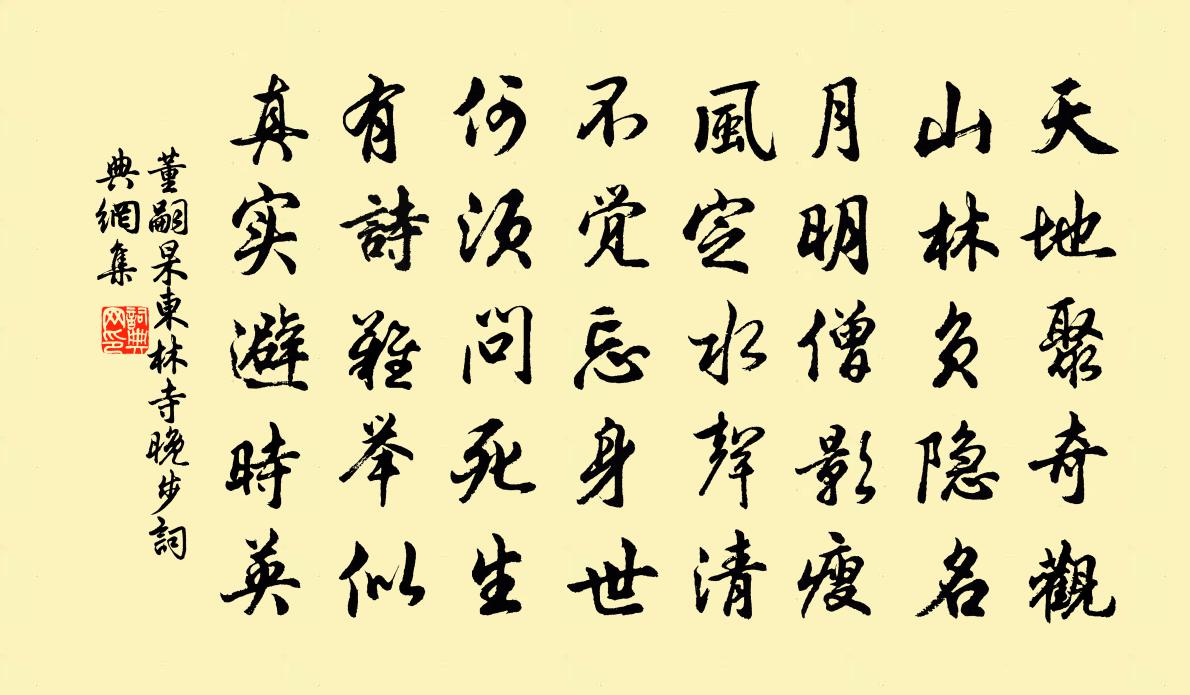 天地聚奇觀
山林負隐名
月明僧影瘦
風定水聲清
不觉忘身世
何須問死生
有詩難举似
真实避時英
董嗣杲東林寺晚步詞
典網集
詞典網印